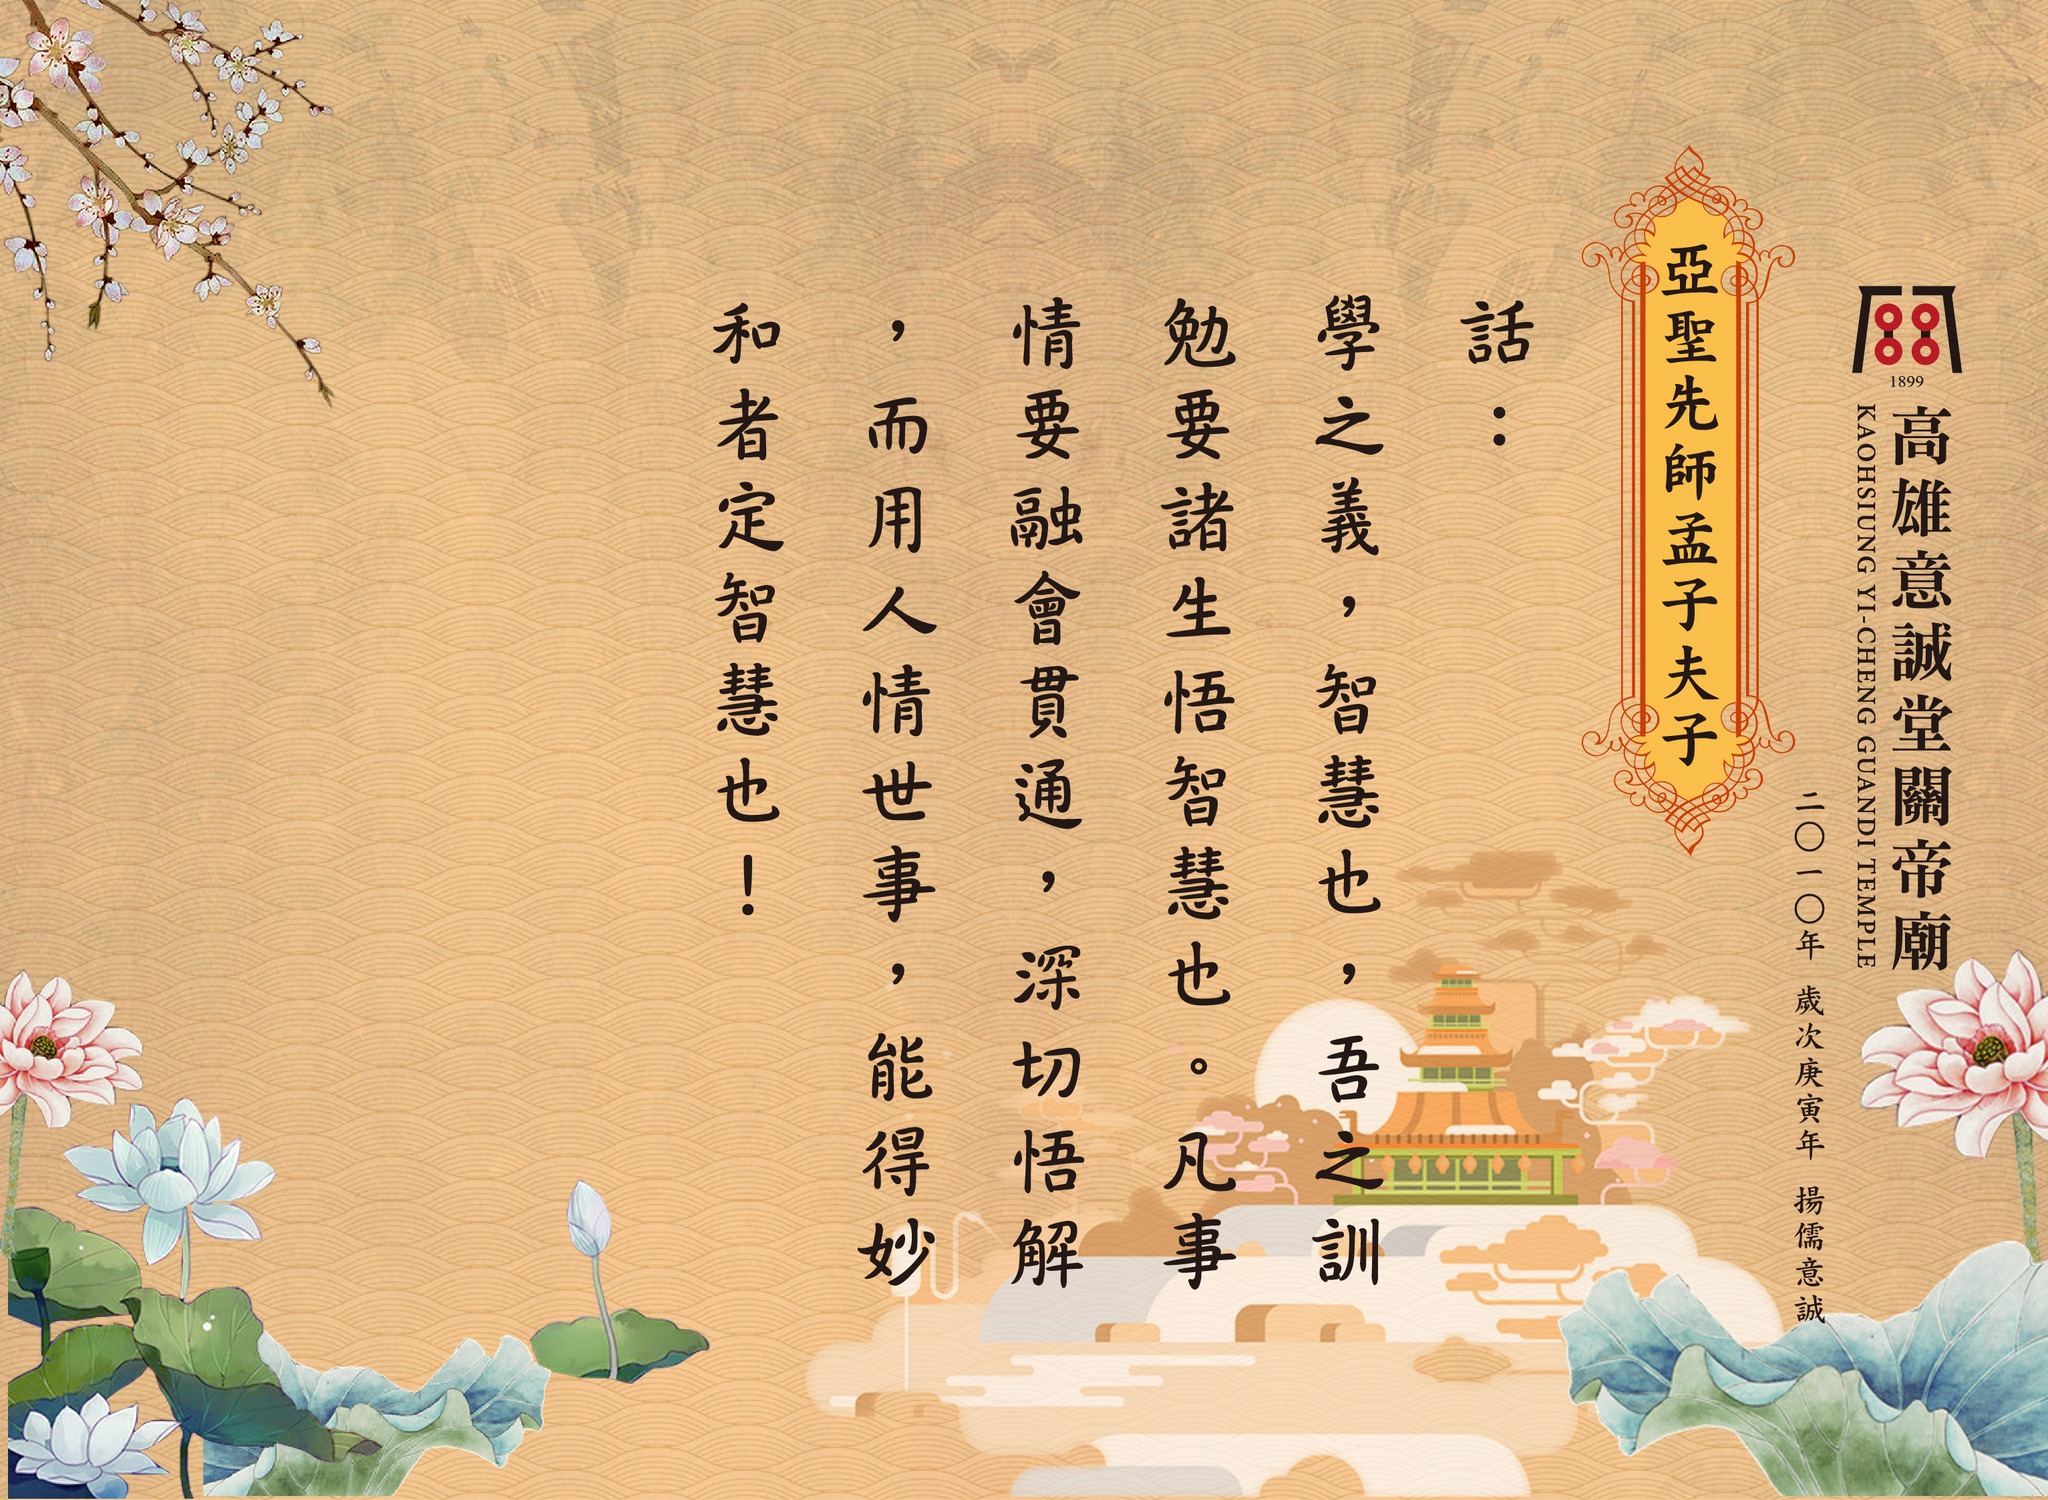 1899
高雄意誠堂關帝廟
KAOHSIUNG YI-CHENG GUANDI TEMPLE
二〇一〇年 歲次庚寅年 揚儒意誠
亞聖先師孟子夫子
話：
學之義，智慧也，吾之訓
勉要諸生悟智慧也。凡事
情要融會貫通，深切悟解
，而用人情世事，能得妙
和者定智慧也！